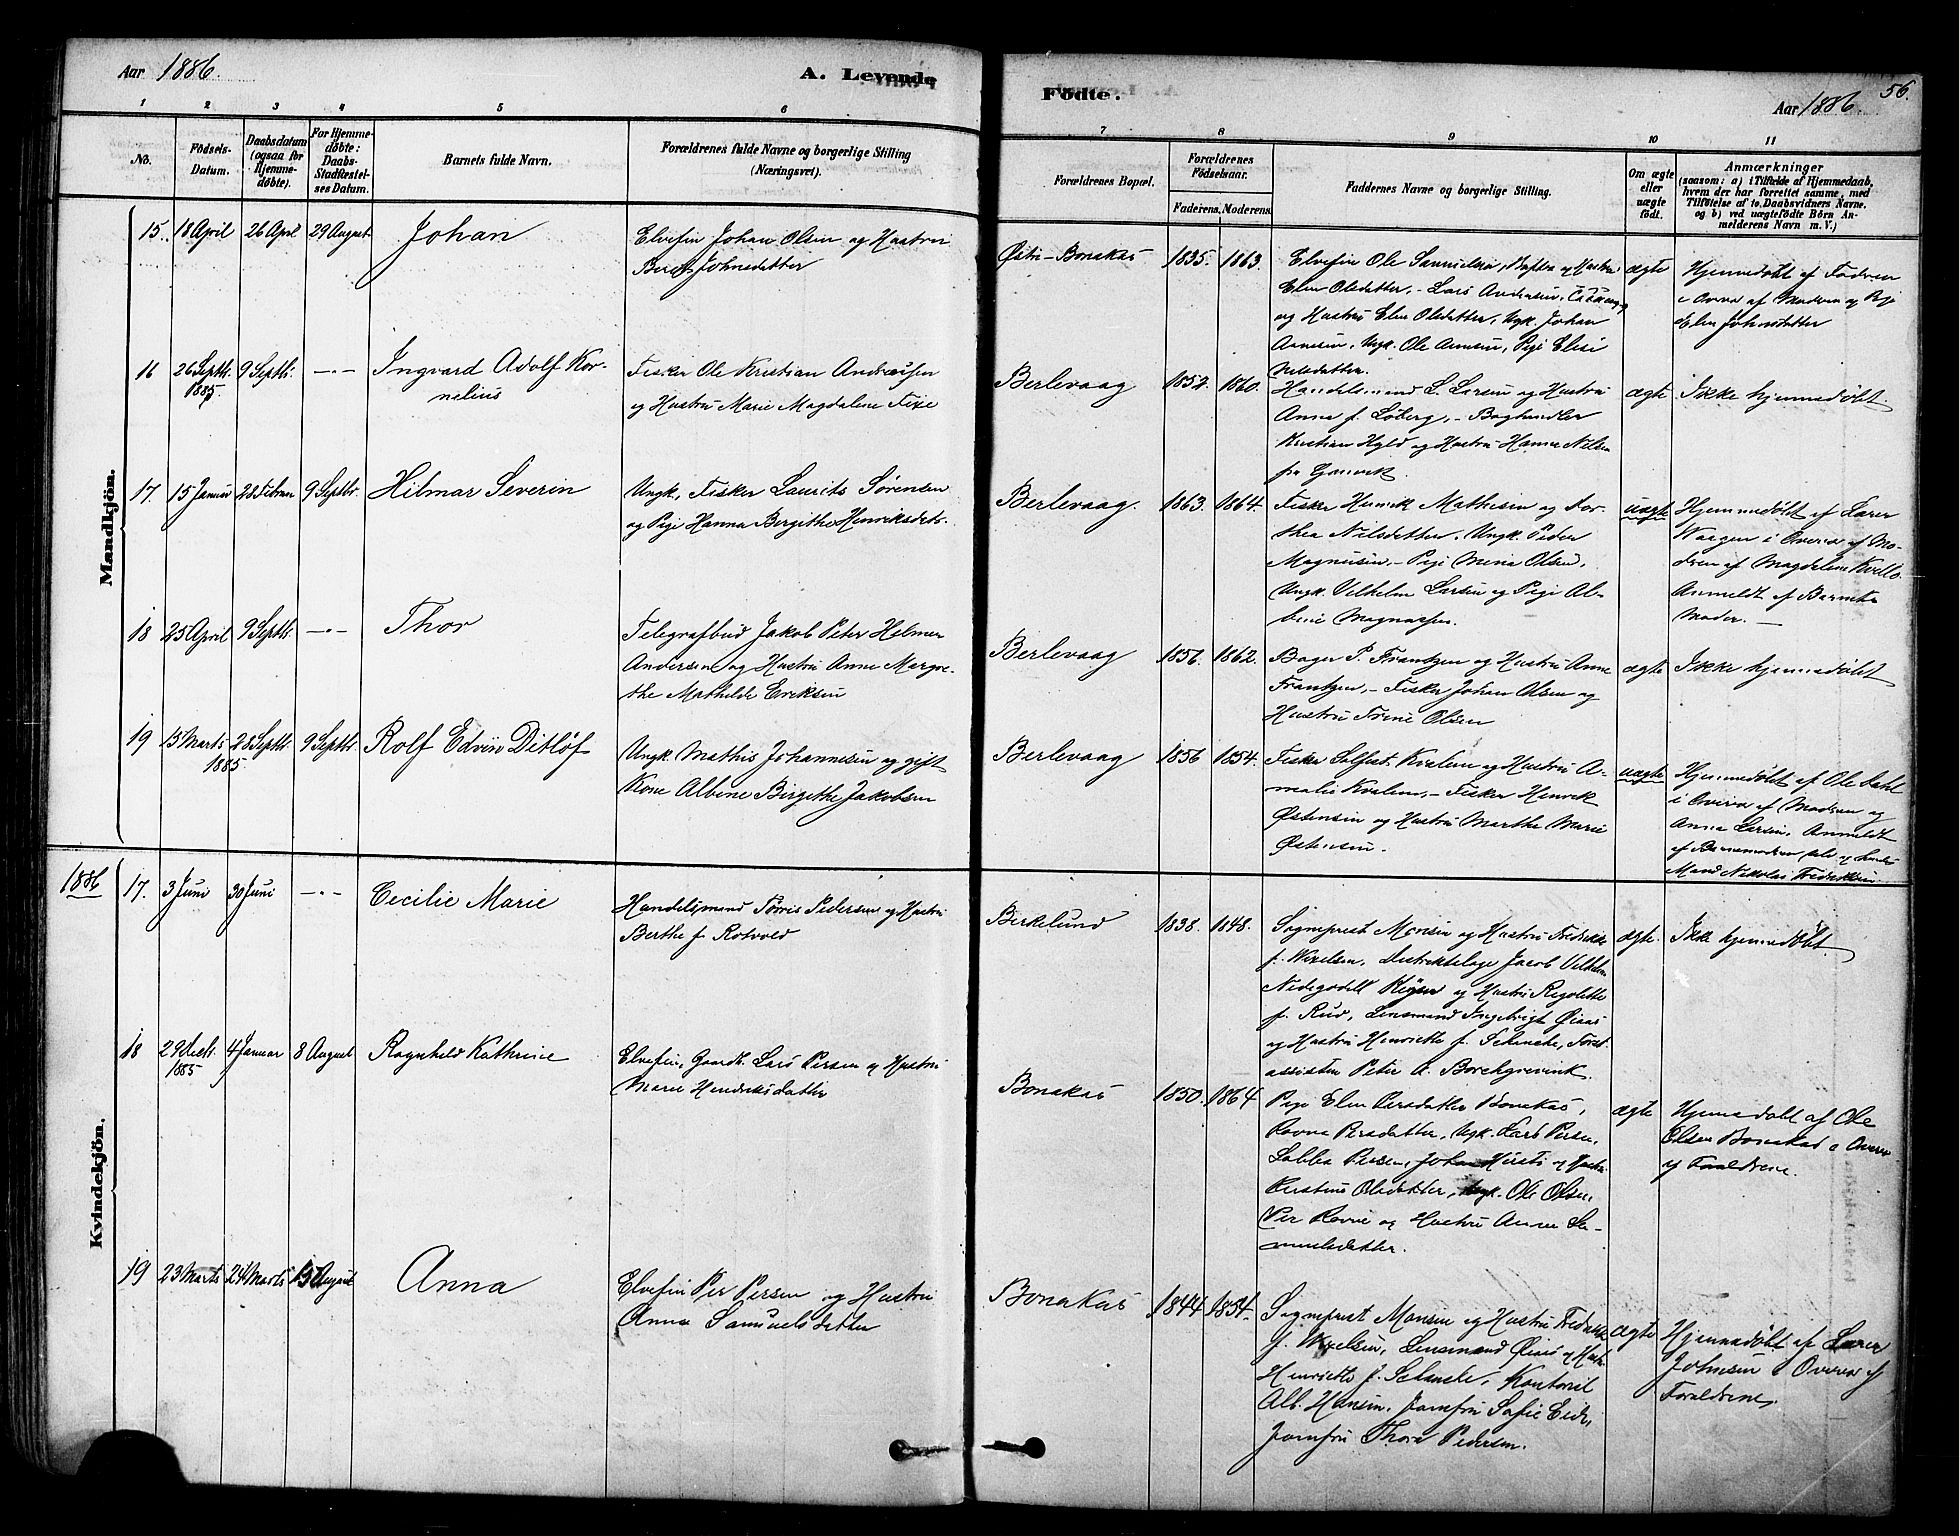 Aar 1886.
A. Levende
1 2 3 4 5 6
No.
Fødsels-Datum.
Daabsdatum (ogsaa for Hjemme-døbte).
For Hjemme-døbte: Daabs-Stadfæstel-ses Datum.
Barnets fulde Navn.
Forældrenes fulde Navne og borgerlige Stilling
(Næringsvei).
Mandkjön.
15. 18 April 26 April 29 August Johan Elvefin Johan Olsen og Hustru
Johnsdatter
16 26 Septbr. 1885 9 Septbr. —"— Ingvard Adolf Kor-
nelius
Fisker Ole Kristian Andreassen
og Hustru Marie Magdalene
17. 15 Januar 28 Februar 9 Septbr. Hilmar Severin Ungk. Fisker Laurits Sørensen
og Pige Hanna Birgithe Henriksdatr.
18 25 April 9 Septbr. —"— Thor Telegrafbud Jakob Peter Helmer
Andersen og Hustru Anne Margre-
the Mathilde Eriksen
19 15 Marts 1885 28 Septbr. 9 Septbr. Rolf Edvin Ditløf Ungk. Mathis Johannesen og gift
Kone Albine Birgithe Jakobsen
Kvindekjön.
1886 17. 3 Juni 30 Juni —"— Cecilie Marie Handelsmand Tørris Pedersen og Hustru
Berthe f. Rotvold
18 29 Decbr. 1885 4 Januar 8 August Ragnhild Kathrine Elvefin, Gaardb. Lars Persen og Hustru
Marie Hendriksdatter
19 23 Marts 24 Marts 15 August Anna Elvefin Per Persen og Hustru
Anna Samuelsdatter
Födte.
Aar 1886. 56.
7 8 9 10 11
Forældrenes Bopæl.
Forældrenes Fødselsaar.
Faderens. Moderens.
Faddernes Navne og borgerlige Stilling.
Om ægte eller uægte født.
Anmærkninger
(saasom: a) i Tilfælde af Hjemmedaab,
hvem der har forrettet samme, med
Tilføielse af to Daabsvidners Navne.
og b) ved uægtefødte Börn An-
melderens Navn m. V.)
Østre-Bonakas 1835. 1863. Elvefin Ole Samuelsen, og Hustru ægte Hjemmedøbt af Faderen
Elen Olsdatter, - Lars Andersen, i Overv. af Moderen og Pige
og Hustru Elen Olsdatter, Ungk. Johan Elen Johnsdatter
Arnesen, Ungk. Ole Arnesen, Pige Elise
Nilsdatter.
Berlevaag 1852. 1860. Handelsmand L. Larsen og Hustru ægte Ikke hjemmedøbt.
Anna f. Løberg, - Boghandler
Kristian Hyld og Hustru Hanne Nilsen
fra Gamvik.
Berlevaag. 1863. 1864. Fisker Henrik Mathisen og Dor- uægte Hjemmedøbt af Lærer
thea Nilsdatter, Ungk. Peder Waagen i Overv. af Mo-
Magnusen, - Pige Mina Olsen, deren af Magdalene Kvello
Ungk. Vilhelm Larsen og Pige Al- Anmeldt af Barnets
bine Magnussen. Moder. —
Berlevaag 1856. 1862. Bager P. Frantzen og Hustru Anne ægte Ikke hjemmedøbt
Frantzen, - Fisker Johan Olsen og
Hustru Trine Olsen
Berlevaag 1856 1854. Fisker Kvalen og Hustru A- uægte Hjemmedøbt af Ole Dahl
malie Kvalem, - Fisker Henrik i Overv. af Moderen og
Østensen og Hustru Marthe Marie Anna Larsen. Anmeldt
Østensen. af Barnemoderen selv og hendes
Mand Nikolai Fredriksen
Birkelund 1838. 1848. Sogneprest Monsen og Hustru Fredrikke ægte. Ikke hjemmedøbt.
f. Wexelsen, Distriktslæge Jacob Vilhelm
Keyser og Hustru Regolette
f. Rud, Lensmand Ingebrigt Øiaas
og Hustru Henriette f. Schanche, Forst-
assistent Peter A. Borchgrevink.
Bonakas 1850. 1864 Pige Elen Persdatter Bonakas, ægte Hjemmedøbt af Ole
Ravna Persdatter, Ungk. Lars Persen, Olsen Bonakas i Overv.
Sabba Persen, Johan og Hustru af Forældrene.
Kirstine Olsdatter, Ungk. Ole Olsen,
Per Ravna og Hustru Anne Sa-
muelsdatter.
Bonakas 1844 1854. Sogneprest Monsen og Hustru Fredrikke ægte Hjemmedøbt af Lærer
f. Wexelsen, Lensmand Øiaas og Hustru Johnsen i Overv. af
Henriette f. Schanche, Kontorist Forældrene.
Alb. Hansen, Jomfru Sofie Eide,
Jomfru Thora Pedersen.